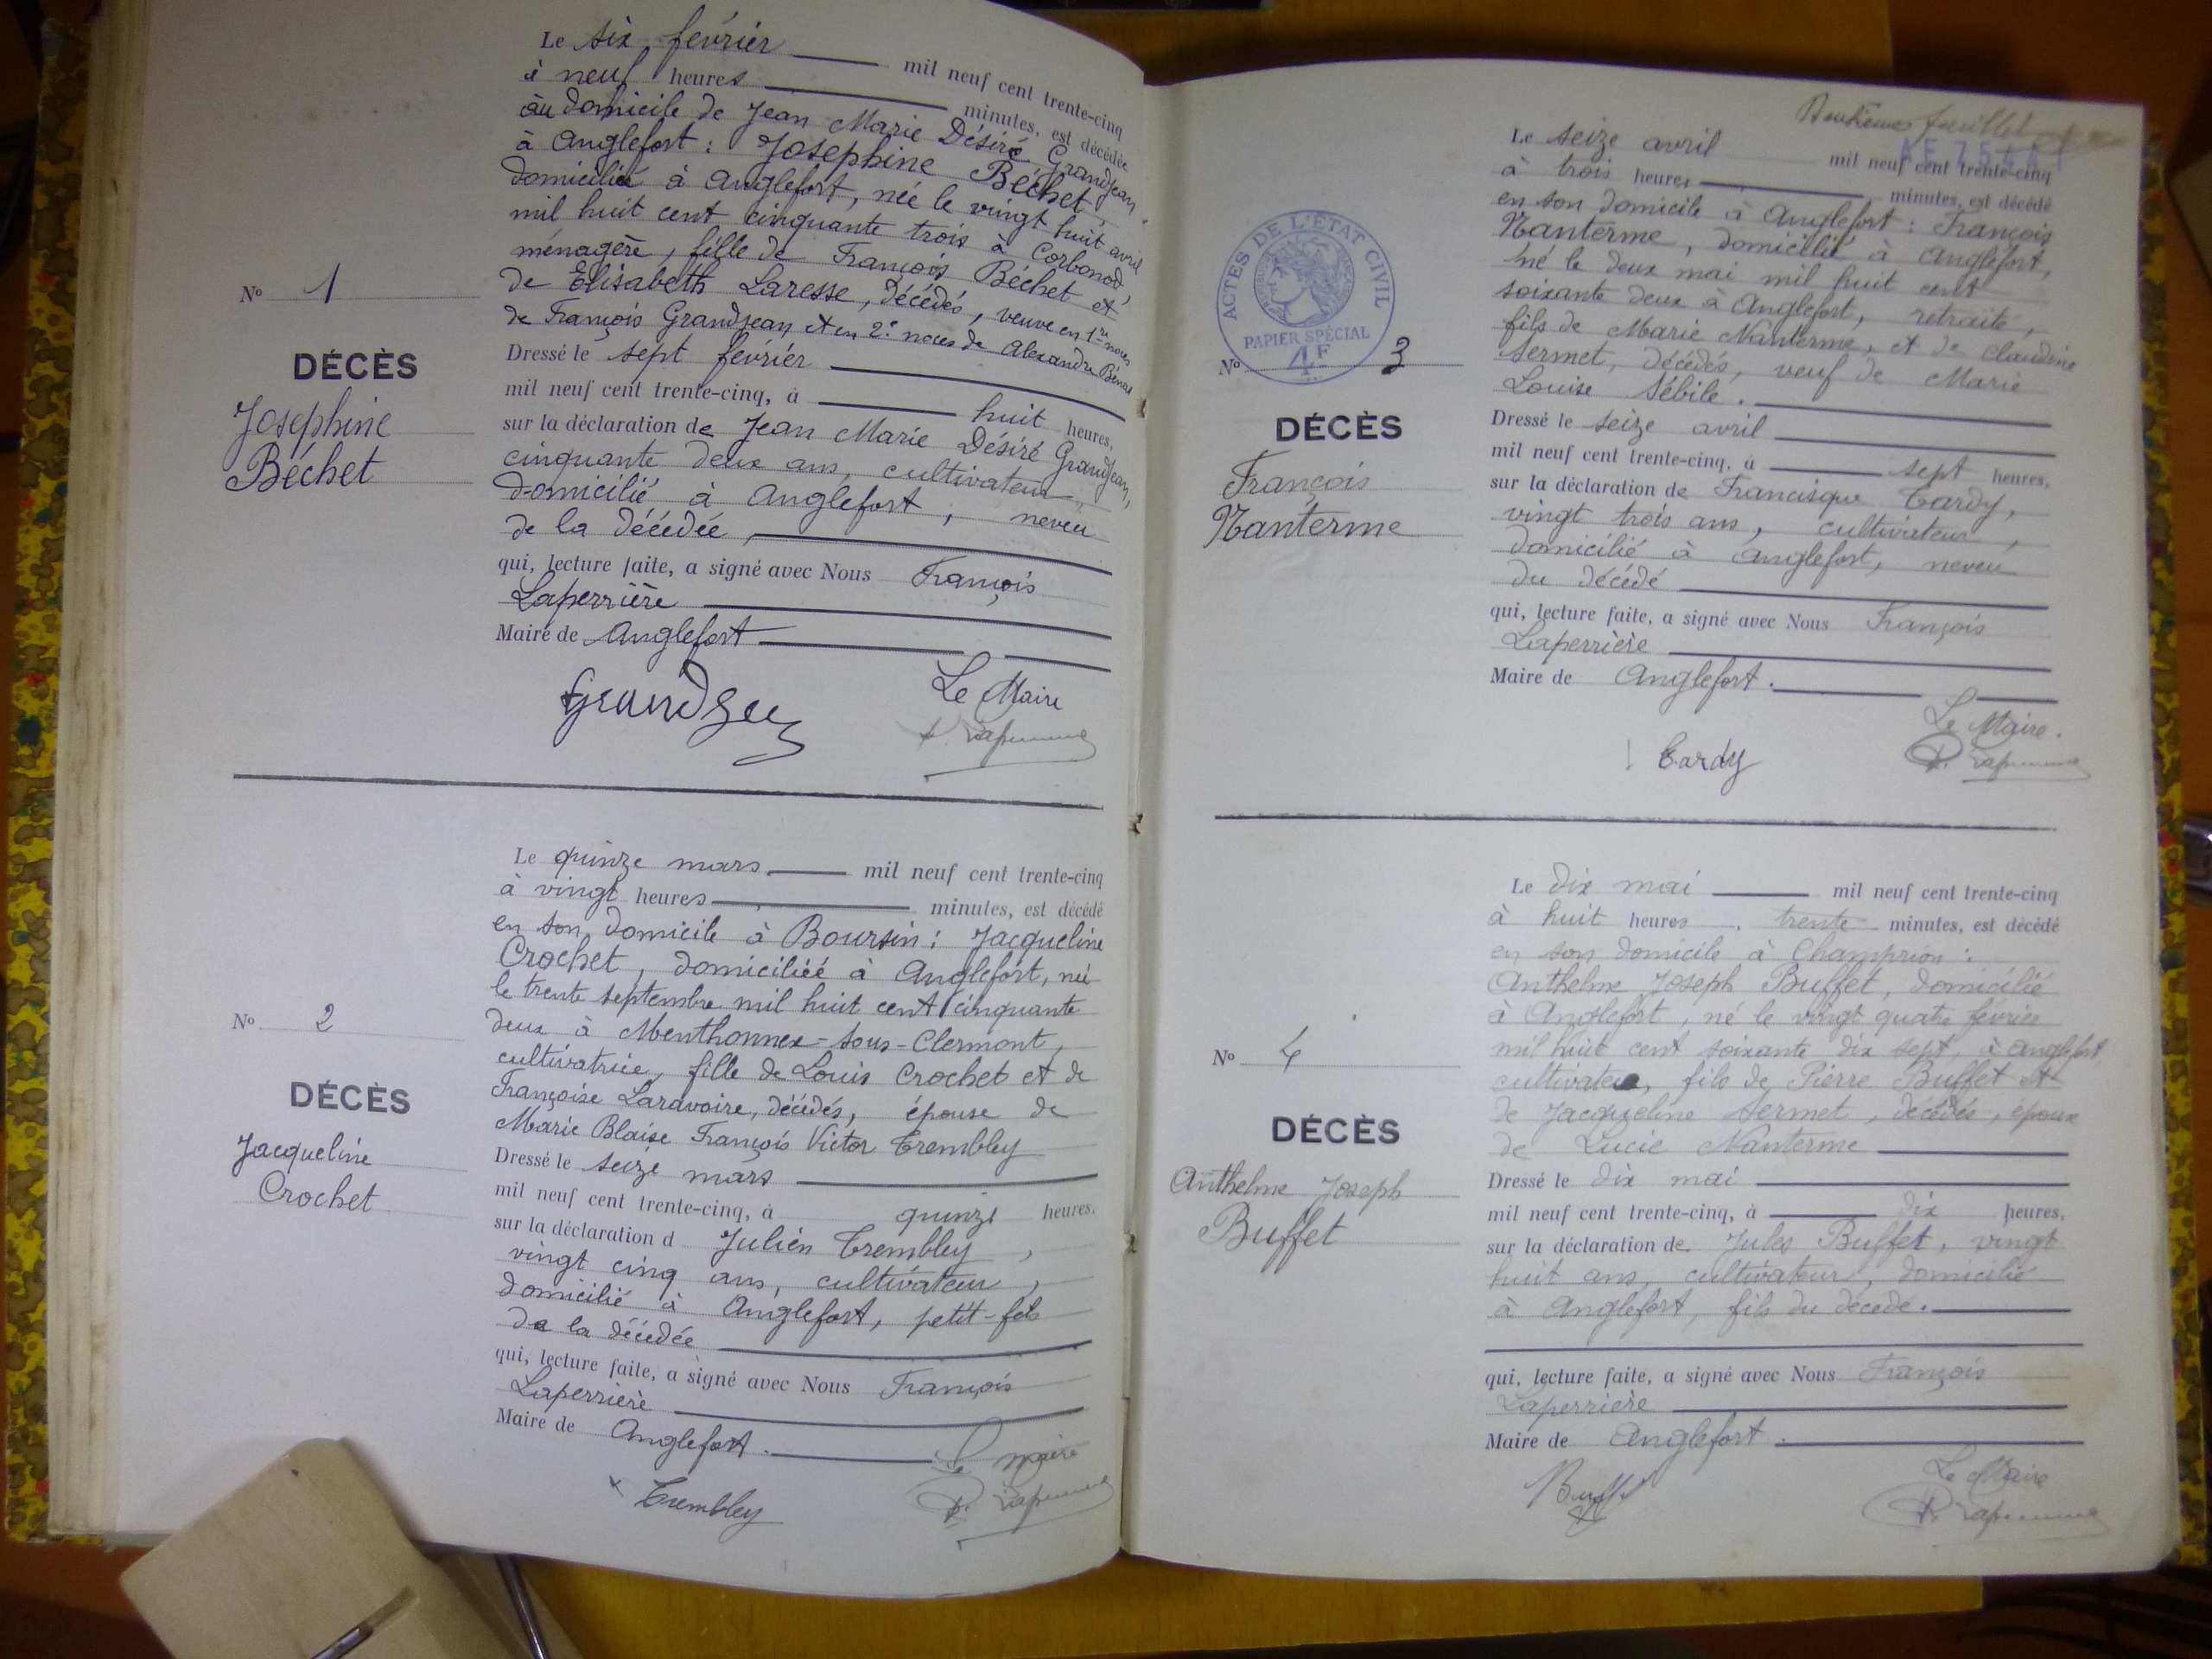 Le six février mil neuf cent trente-cinq
à neuf heures minutes, est décédée
au domicile de Jean Marie Désiré Grandjean
à Anglefort : Josephine Béchet,
domiciliée à Anglefort, née le vingt huit avril
mil huit cent cinquante trois à Corbonod,
ménagère, fille de François Béchet et
de Elisabeth Laresse, décédés, veuve en 1res noces
de François Grandjean et en 2e noces de Alexandre
Nº 1
DÉCÈS
Josephine
Béchet
Dressé le sept février
mil neuf cent trente-cinq, à huit heures,
sur la déclaration de Jean Marie Désiré Grandjean,
cinquante deux ans, cultivateur,
domicilié à Anglefort, neveu
de la décédée,
qui, lecture faite, a signé avec Nous François
Laperrière
Maire de Anglefort
Le Maire
Le quinze mars mil neuf cent trente-cinq
à vingt heures minutes, est décédé
en son domicile à Boursin : Jacqueline
Crochet, domiciliée à Anglefort, née
le trente septembre mil huit cent cinquante
deux à Menthonnex-sous-Clermont,
cultivatrice, fille de Louis Crochet et de
Françoise Laravoire, décédés, épouse de
Marie Blaise François Victor Trembley
Nº 2
DÉCÈS
Jacqueline
Crochet
Dressé le seize mars
mil neuf cent trente-cinq, à quinze heures.
sur la déclaration d Julien Trembley,
vingt cinq ans, cultivateur,
domicilié à Anglefort, petit-fils
de la décédée
qui, lecture faite, a signé avec Nous François
Laperrière
Maire de Anglefort.
Le maire
Trembley
feuillet
Le seize avril mil neuf cent trente-cinq
à trois heures minutes, est décédé
en son domicile à Anglefort : François
Nanterme, domicilié à Anglefort,
né le deux mai mil huit cent
soixante deux à Anglefort, retraité,
fils de Marie Nanterme, et de Claudine
Sermet, décédés, veuf de Marie
Louise Sébile.
ACTES DE L'ÉTAT CIVIL
PAPIER SPÉCIAL
4F
Nº 3
DÉCÈS
François
Nanterme
Dressé le seize avril
mil neuf cent trente-cinq, à sept heures.
sur la déclaration de Francisque Tardy,
vingt trois ans, cultivateur,
domicilié à Anglefort, neveu
du décédé
qui, lecture faite, a signé avec Nous François
Laperrière
Maire de Anglefort.
Le Maire.
Tardy
Le dix mai mil neuf cent trente-cinq
à huit heures, trente minutes, est décédé
en son domicile à Champrion :
Anthelme Joseph Buffet, domicilié
à Anglefort, né le vingt quatre février
mil huit cent soixante dix sept, à Anglefort
cultivateur, fils de Pierre Buffet et
de Jacqueline Sermet, décédés, époux
de Lucie Nanterme
Nº 4
DÉCÈS
Anthelme Joseph
Buffet
Dressé le dix mai
mil neuf cent trente-cinq, à dix heures,
sur la déclaration de Jules Buffet, vingt
huit ans, cultivateur, domicilié
à Anglefort, fils du décédé.
qui, lecture faite, a signé avec Nous François
Laperrière
Maire de Anglefort.
Le Maire
Buffet